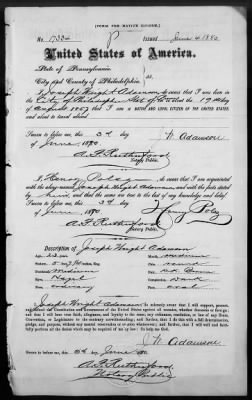 [FORM FOR NATIVE CITIZEN.]
No. 17334 Issued June 4 1880
United States of America.
State of Pennsylvania,
City and County of Philadelphia, ss.
I, Joseph Wright Adamson, do swear that I was born in
the City of Philadelphia State of on the 19th day
of August 1857; that I am a NATIVE AND LOYAL CITIZEN OF THE UNITED STATES,
and about to travel abroad.
Sworn to before me, this 3d day J. W. Adamson
of June, 1880
A. F. Rutherford
Notary Public.
I, Henry Poley, do swear that I am acquainted
with the above-named Joseph Wright Adamson, and with the facts stated
by him, and that the same are true to the best of my knowledge and belief.
Sworn to before me, this 3d day Henry Poley
of June, 1880
A. F. Rutherford
Notary Public.
Description of Joseph Wright Adamson
Age: 22 years
Stature: 5 feet inches, Eng.
Forehead: Medium
Eyes: Hazel
Nose: ordinary
Mouth: medium
Chin: round
Hair: Dk. Brown
Complexion: Dark
Face: oval
I, Joseph Wright Adamson, do solemnly swear that I will support, protect,
and defend the Constitution and Government of the United States against all enemies, whether domestic or foreign;
and that I will bear true faith, allegiance and loyalty to the same, any ordinance, resolution, or law of any State,
Convention, or Legislature to the contrary notwithstanding; and further, that I do this with a full determination,
pledge, and purpose, without any mental reservation or evasion whatsoever; and further, that I will well and faithfully
perform all the duties which may be required of me by law. So help me God.
J. W. Adamson
Sworn to before me, this 3d June 1880
A. F. Rutherford
Notary Public